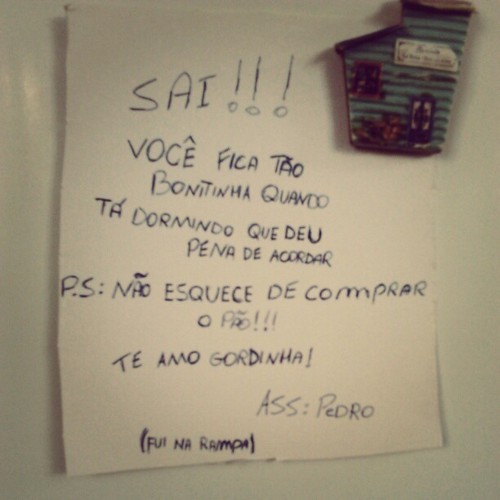 SAI!!!
VOCÊ FICA TÃO
BONITINHA QUANDO
TÁ DORMINDO QUE DEU
PENA DE ACORDAR
P.S: NÃO ESQUECE DE COMPRAR
O PÃO!!!
TE AMO GORDINHA!
ASS: PEDRO
(FUI NA RAMPA)